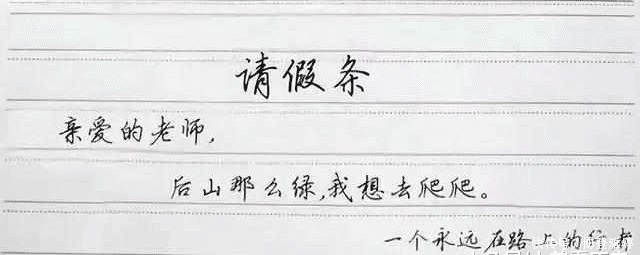 请假条
亲爱的老师,
后山那么绿,我想去爬爬。
一个永远在路上的行者